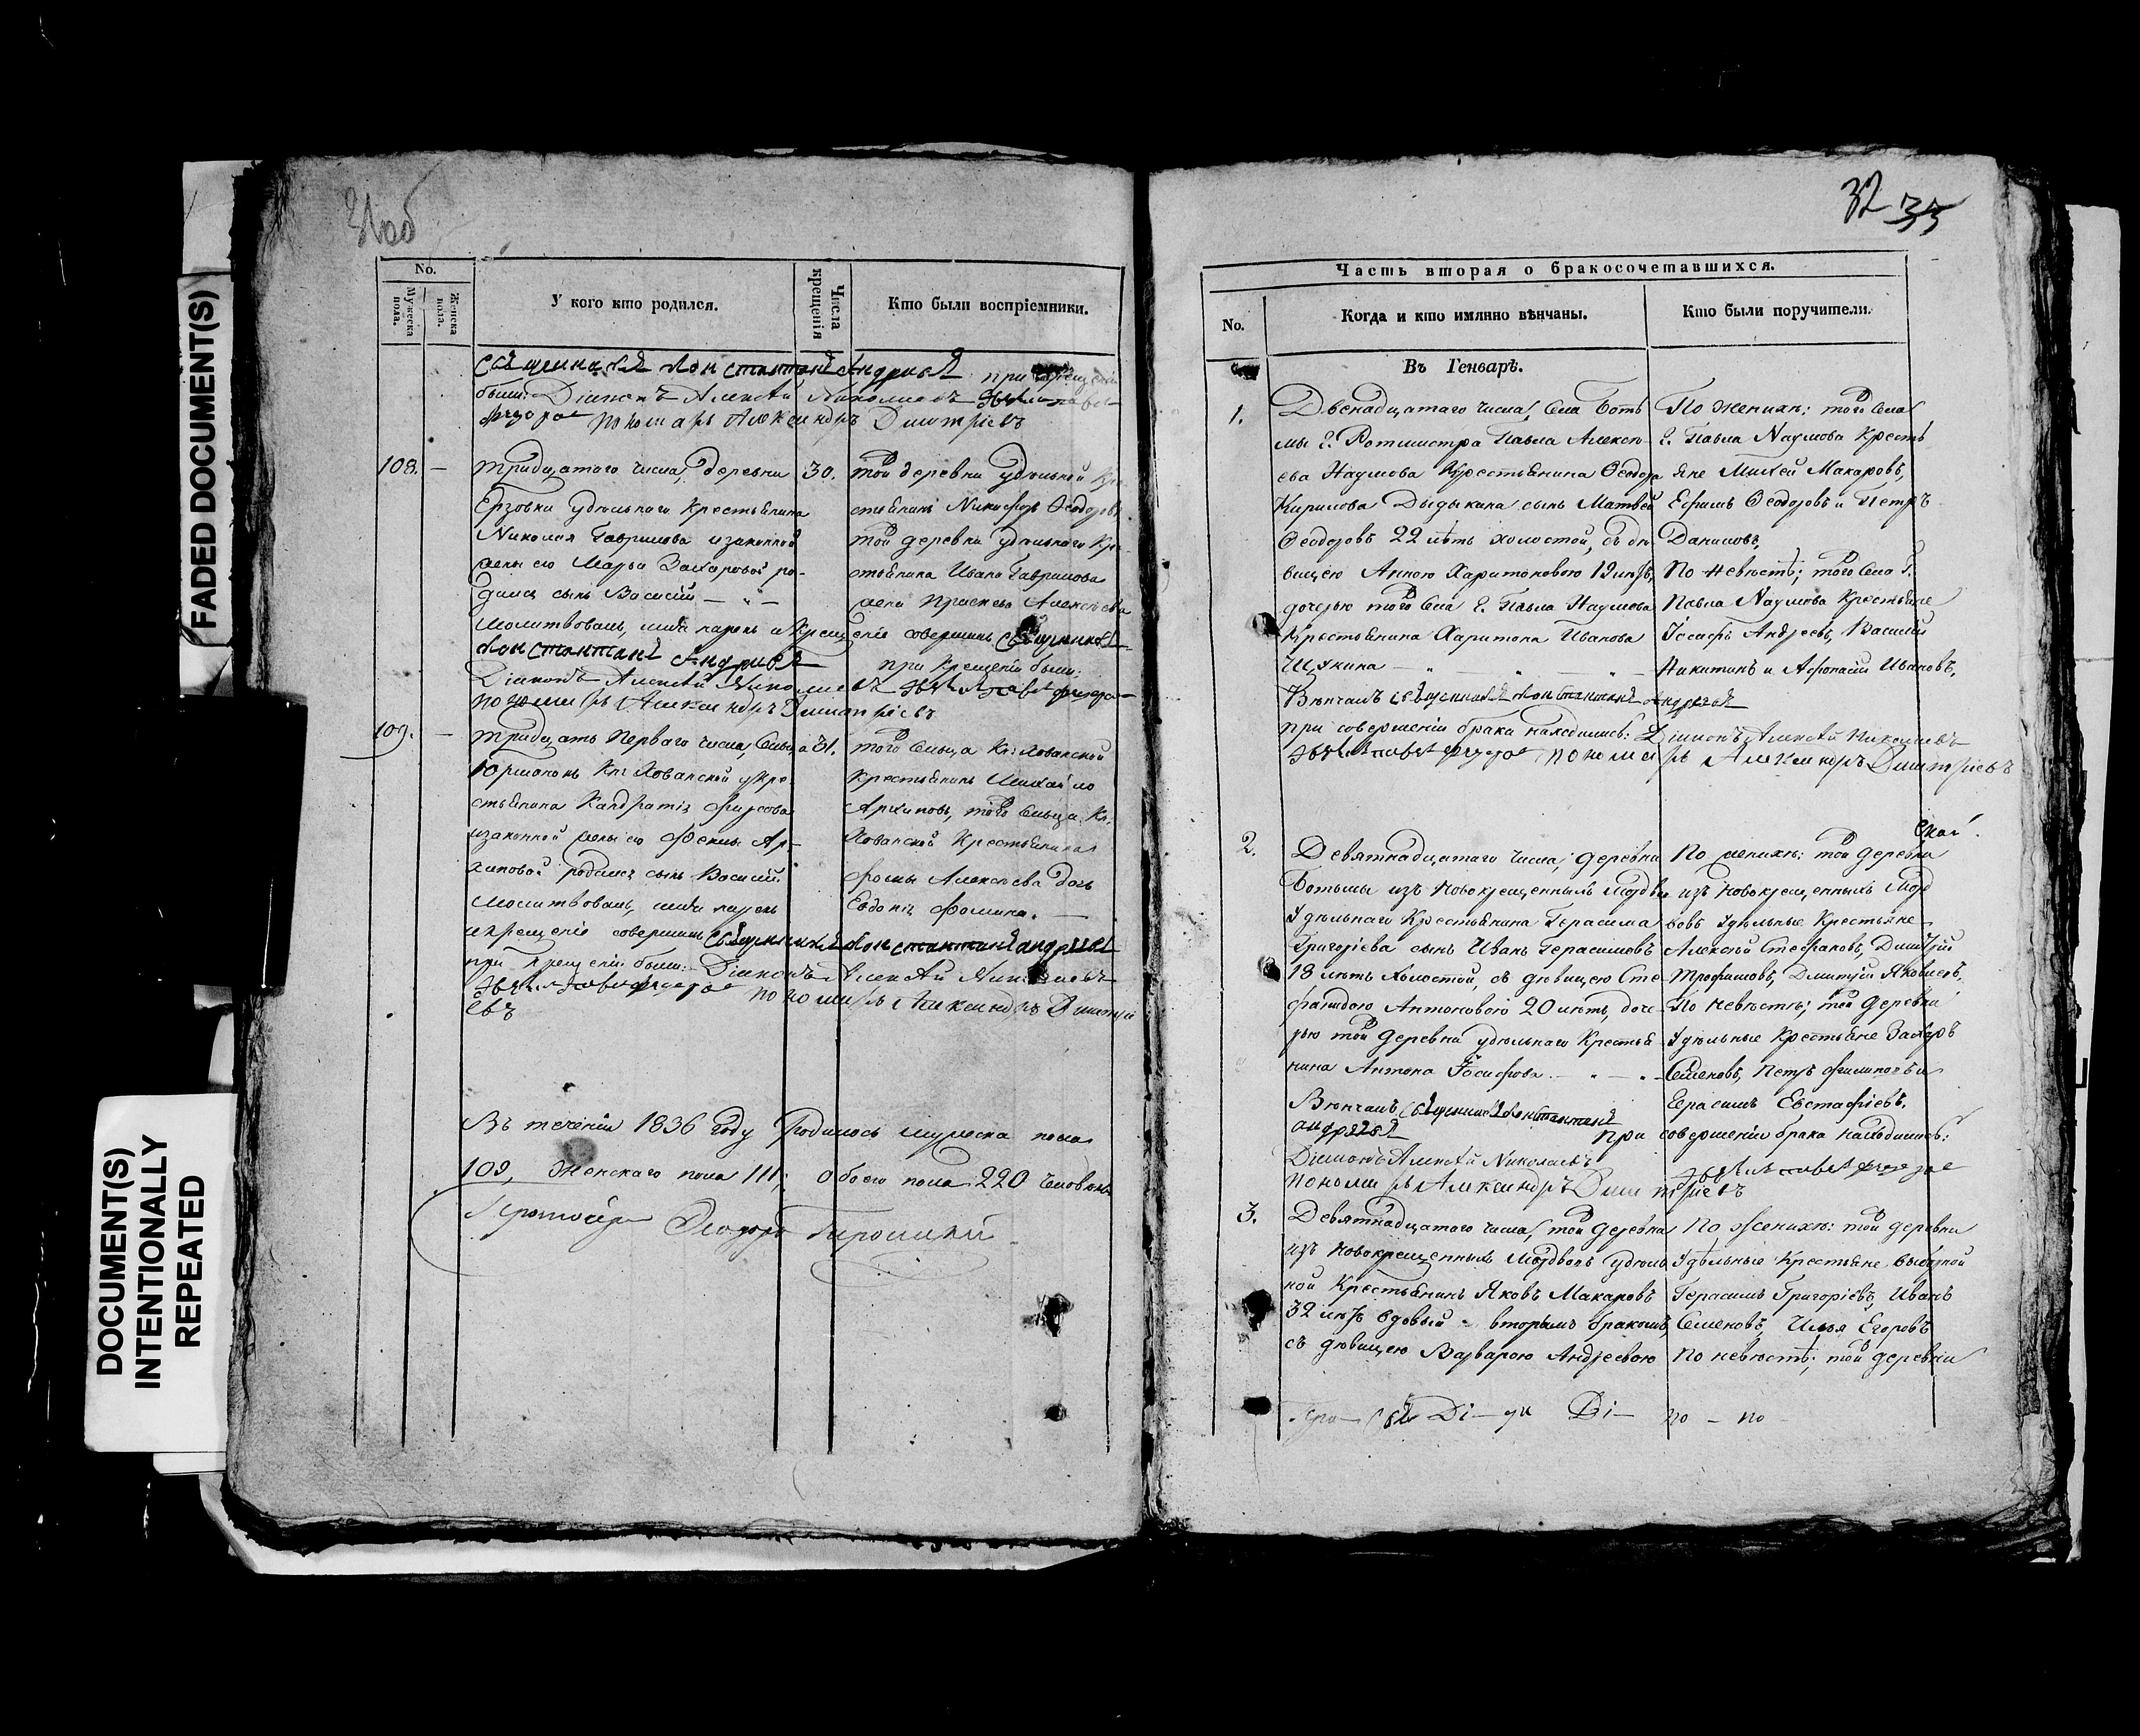 FADED DOCUMENT(S)
DOCUMENT(S)
INTENTIONALLY
REPEATED
31 об
No.
Мужеска пола.
Женска пола.
У кого кто родился.
Числа крещенія
Кто были воспріемники.
Священникъ Константинъ Андреевъ при крещеніи
были: Діаконъ Алексѣй Николаевъ
пономарь Александръ Димитріевъ
108. — тридцатаго числа, деревни
Ерзовки удѣльнаго крестьянина
Николая Гаврилова и законной
жены его Марьи Захаровой ро-
дился сынъ Василій — „ —
Молитвовалъ, имя нарекъ и крещеніе совершилъ священникъ
Константинъ Андреевъ при крещеніи были:
Діаконъ Алексѣй Николаевъ
пономарь Александръ Димитріевъ
30. той деревни удѣльной кре-
стьянинъ Никифоръ Ѳеодоровъ
той деревни удѣльнаго кре-
стьянина Ивана Гаврилова
жена Алексѣева
109. — тридцать перваго числа, сельца
Кн: Хованской кре-
стьянина
и законной жены его Феклы Ар-
хиповой родился сынъ Василій
Молитвовалъ, имя нарекъ
и крещеніе совершилъ священникъ Константинъ Андреевъ
при крещеніи были: Діаконъ Алексѣй Николаевъ
пономарь Александръ Димитрі
евъ
31. того сельца Кн: Хованской
крестьянинъ Михайло
Архиповъ, того сельца Кн.
Хованской крестьянина
Фомы Алексѣева дочь
Евдокія Фомина. —
Въ теченіи 1836 году родилось мужеска пола
109, женскаго пола 111; обоего пола 220 человѣкъ
32 33
Часть вторая о бракосочетавшихся.
No.
Когда и кто имянно вѣнчаны.
Кто были поручители.
Въ Генварѣ.
1. Двенадцатаго числа, села Боть
мы г. Ротмистра Павла Алексѣ-
ева Наумова крестьянина Ѳеодора
Кирилова Дыдыкина сынъ Матвей
Ѳеодоровъ 22 лѣтъ холостой, съ дѣ
вицею Анною Харитоновою 19 лѣтъ,
дочерью того села г. Павла Наумова
крестьянина Харитона Иванова
Щукина — „
Вѣнчалъ священникъ Константинъ Андреевъ
при совершеніи брака находились: Діаконъ Алексѣй Николаевъ
пономарь Александръ Димитріевъ
По женихѣ: того села
г. Павла Наумова кресть
яне Михей Макаровъ,
Ефимъ Ѳеодоровъ и Петръ
Даниловъ,
По невѣстѣ; того села г.
Павла Наумова крестьяне
Іосафъ Андреевъ, Василій
Никитинъ и Афонасій Ивановъ,
2. Девятнадцатаго числа; деревни
Ботьмы изъ новокрещенныхъ Мордвы
удѣльнаго крестьянина Герасима
Григоріева сынъ Иванъ Герасимовъ
18 лѣтъ холостой, съ дѣвицею Сте
фанидою Антоновою 20 лѣтъ, доче-
рью той деревни удѣльнаго крестья
нина Антона Іосифова. — „ —
Вѣнчалъ священникъ Константинъ
Андреевъ при совершеніи брака находились:
Діаконъ Алексѣй Николаевъ
пономарь Александръ Димитріевъ
По женихѣ: той деревни
изъ новокрещенныхъ Морд
вовъ удѣльные крестьяне
Алексѣй Стефановъ, Димитрій
Трофимовъ, Димитрій Яковлевъ.
По невѣстѣ; той деревни
удѣльные крестьяне Захаръ
Семеновъ, Петръ
Герасимъ Евстафіевъ.
3. Девятнадцатаго числа, той деревни
изъ новокрещенныхъ Мордвовъ удѣль
ной крестьянинъ Яковъ Макаровъ
32 лѣтъ вдовый — вторымъ бракомъ,
съ дѣвицею Варварою Андреевою
По женихѣ: той деревни
удѣльные крестьяне
Герасимъ Григоріевъ, Иванъ
Семеновъ, Илья Егоровъ
По невѣстѣ; той деревни